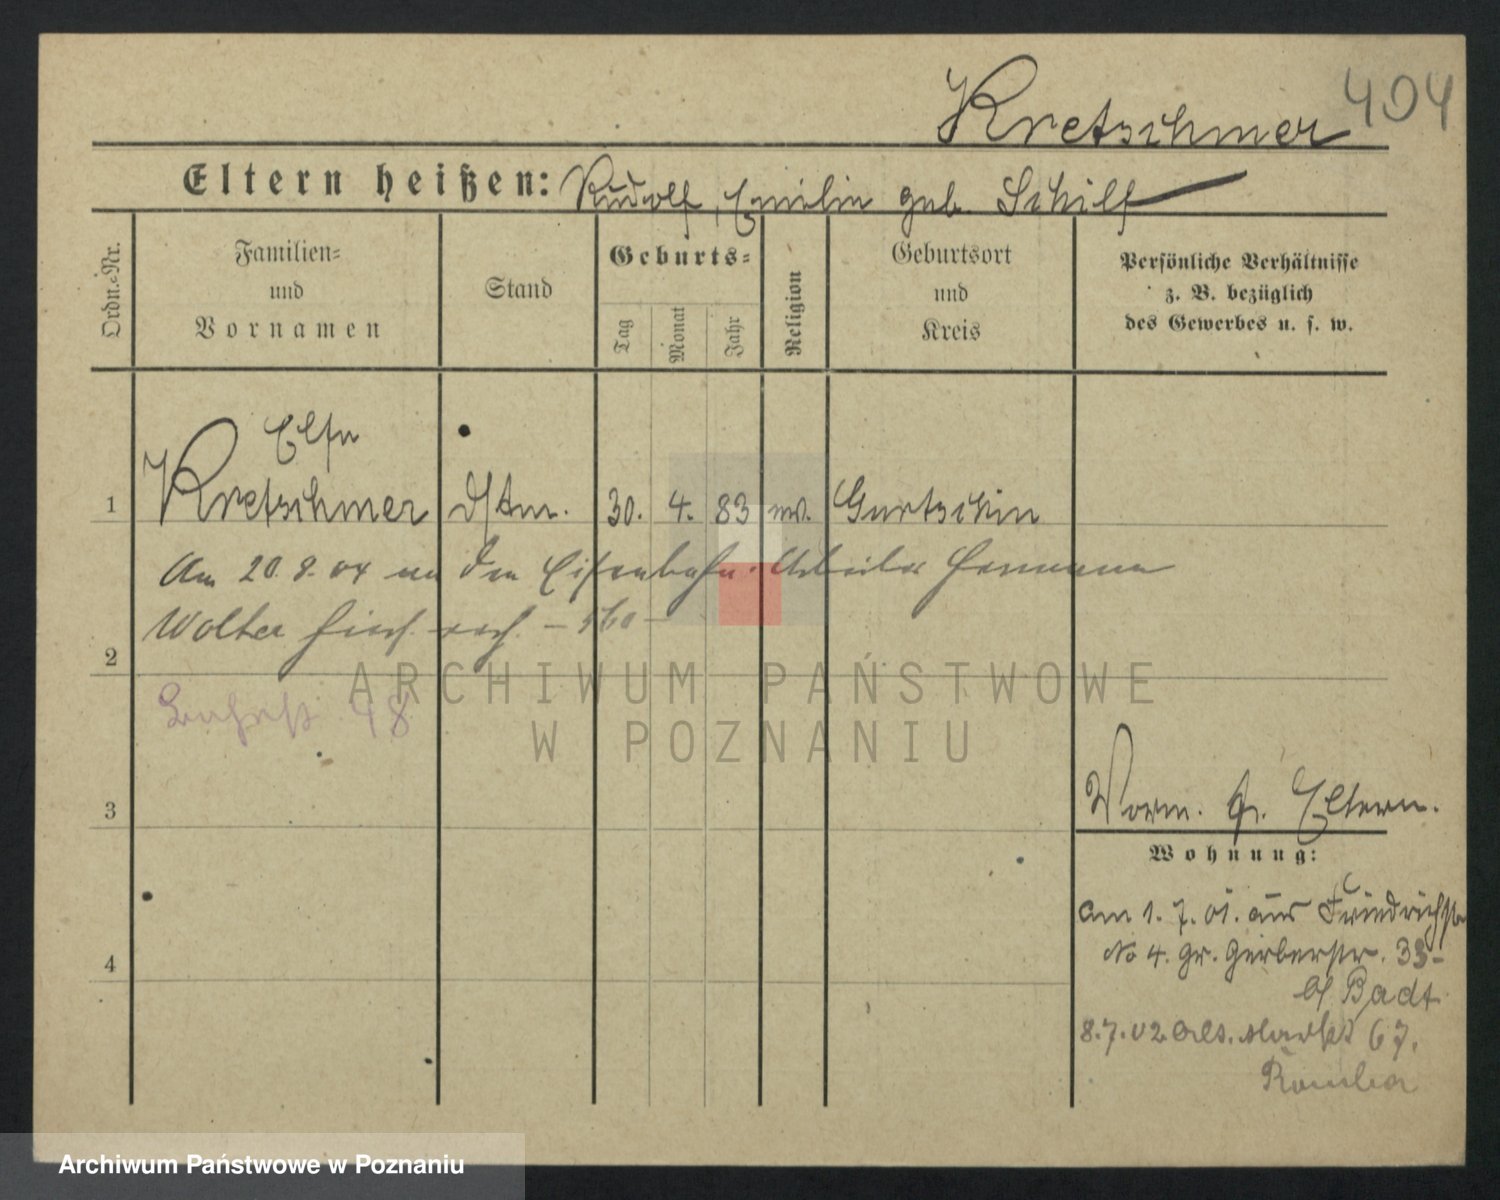 Kretschmer 404
Eltern heißen: Rudolf, Emilie geb. Schilf
Ordn.-Nr.
Familien-
und
Vornamen
Stand
Geburts-
Tag
Monat
Jahr
Religion
Geburtsort
und
Kreis
Persönliche Verhältnisse
z. B. bezüglich
des Gewerbes u. s. w.
Else
1 Kretschmer 30. 4. 83 ev. Gurtschin
Am 20.8.04 an den Eisenbahn-Arbeiter Hermann
Wolter
2
48
3
Vorm. Eltern.
Wohnung:
4
am 1.7.01. aus Friedrichstr
No 4. Gr. Gerberstr. 33-
b/ Badt.
8.7.02 Alt. Markt 67.
ARCHIWUM PAŃSTWOWE
W POZNANIU
Archiwum Państwowe w Poznaniu